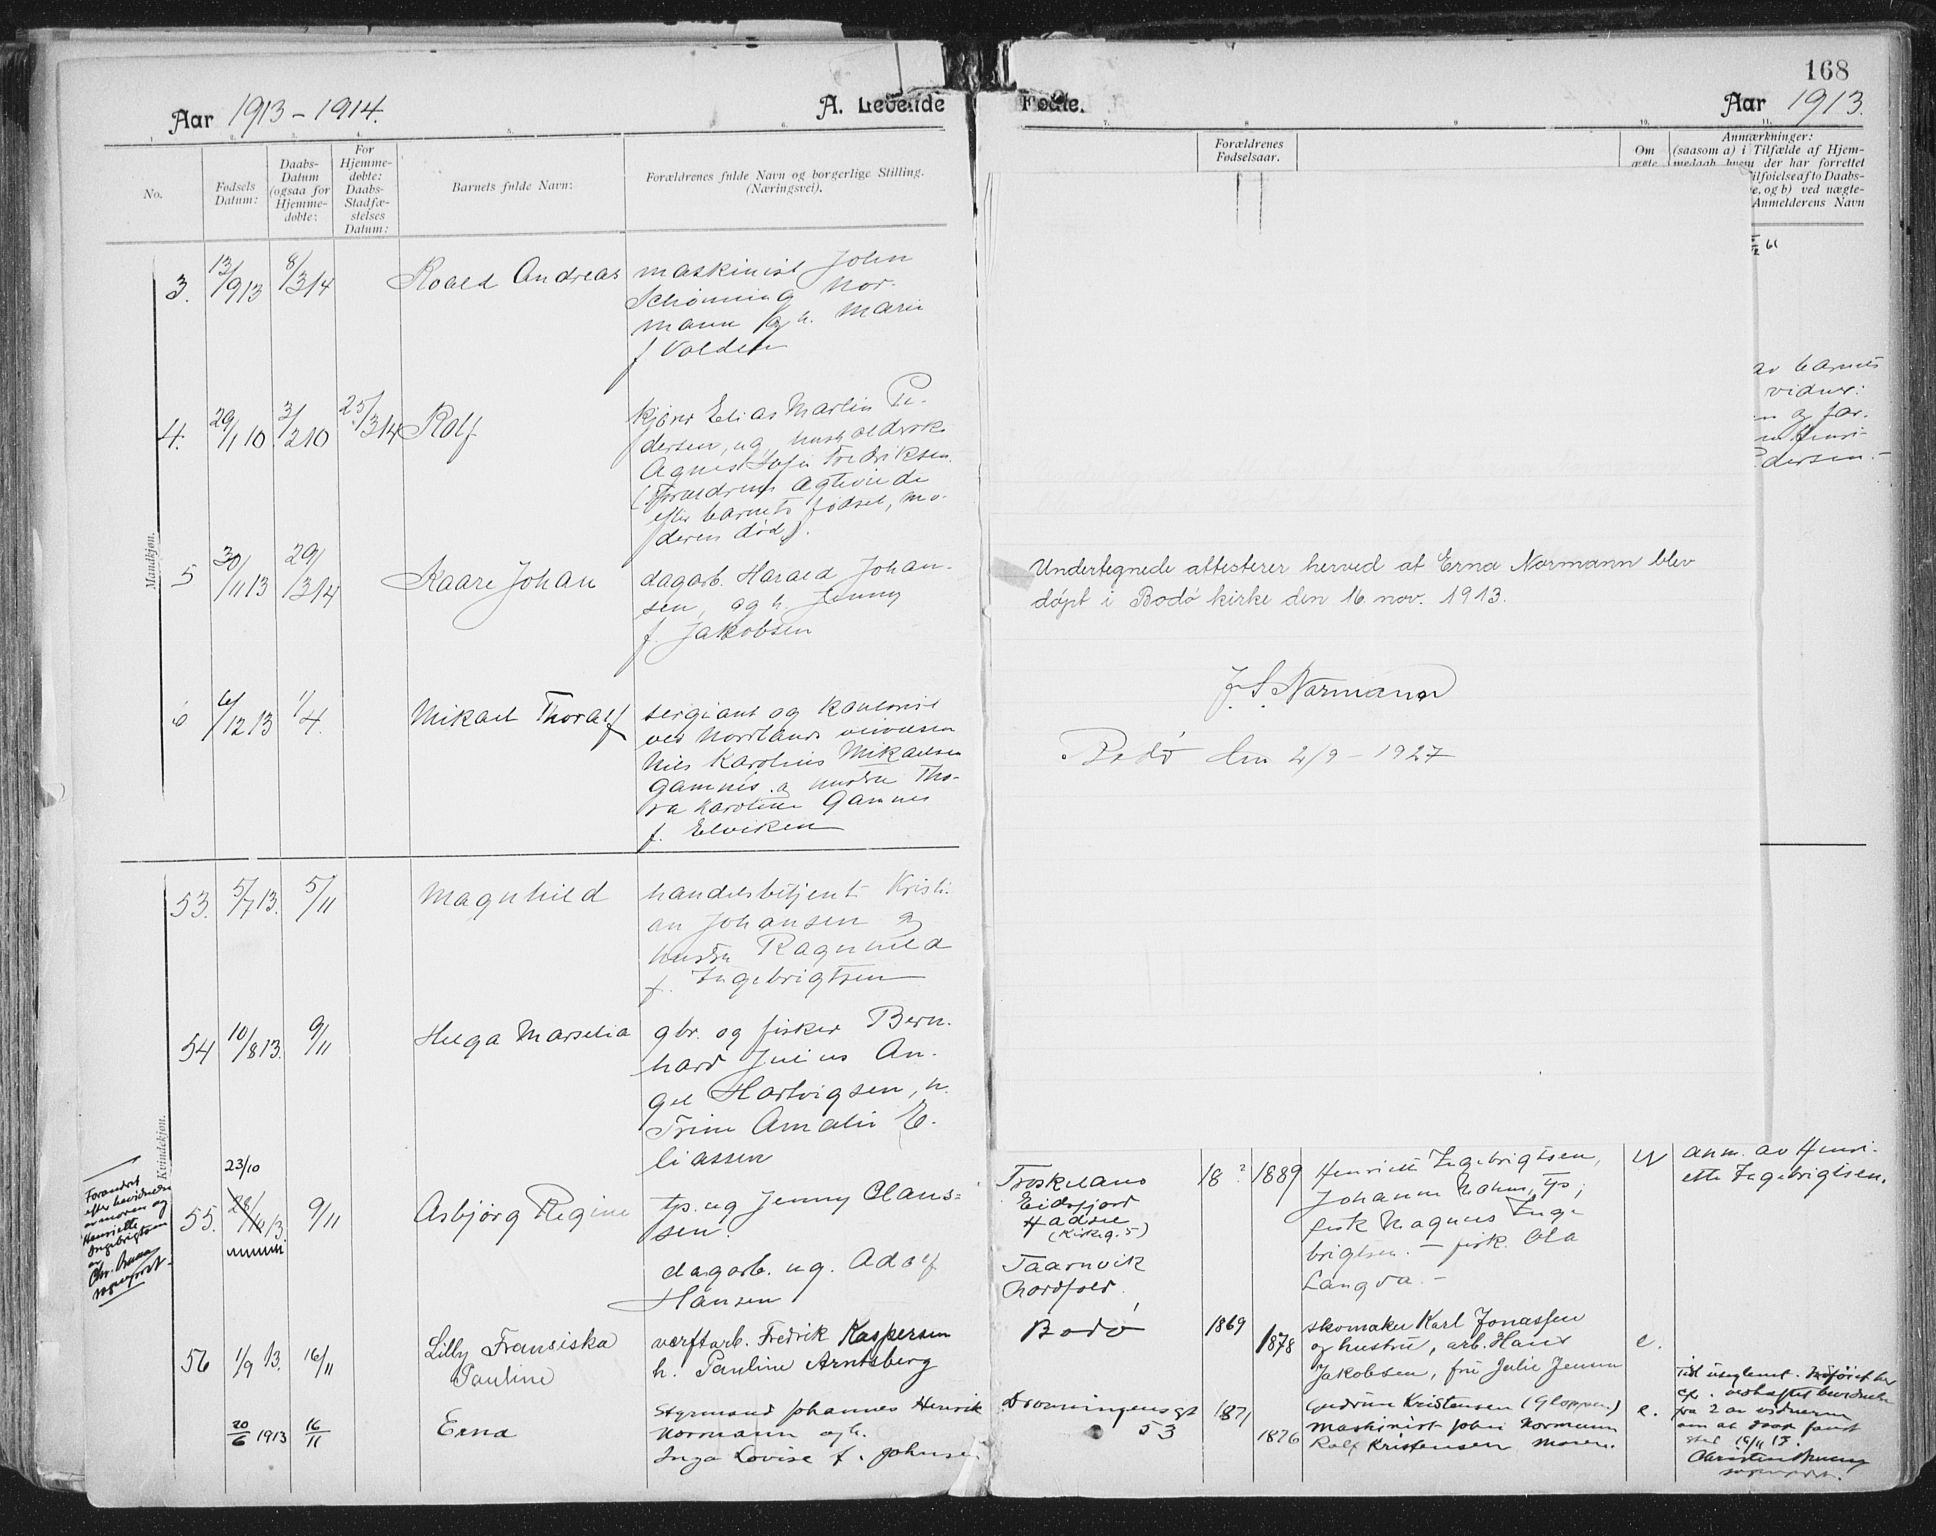 168
Aar 1913-1914.
A. Levende
Fødte.
Aar 1913.
1. 2. 3. 4. 5. 6. 7. 8 9 10. 11.
No.
Fødsels
Datum:
Daabs-
Datum
(ogsaa for
Hjemme-
døbte:
For
Hjemme-
døbte:
Daabs-
Stadfæ-
stelses
Datum:
Barnets fulde Navn:
Forældrenes fulde Navn og borgerlige Stilling.
(Næringsvei).
Forældrenes
Fødselsaar.
Om
ægte
Anmærkninger:
(saasom a) i Tilfælde af Hjem-
medaab, hvem der har forrettet
Tilføielse af to Daabs-
e, og b) ved uægte-
Anmelderens Navn
Mandkjøn.
3. 13/9 13 8/3 14 Roald Andreas
maskinist John
Schønning Nor-
mann og h. Marie
f Volden
4. 29/1 10. 3/2 10 25/3 14 Rolf
kjører Elias Martin Pe-
dersen, ug
Agnes Sofie Fredriksen.
(Forældrene ægteviede
efter barnets fødsel, mo-
deren død).
av barnets
vidner:
5 30/11 13 29/3 14 Kaare Johan
dagarb. Harald Johan-
sen, og h. Jenny
f. Jakobsen
6 6/12 13 1/4. Mikael Thoralf
sergiant og kontorist
ved Nordlands
Nils Karolius Mikaelsen
Gamnes og hustru Tho-
ra Karoline Gamnes
f. Elviken
Undertegnede attesterer herved at Erna Normann blev
døpt i Bodø kirke den 16. nov. 1913.
J. S. Normann
Bodø den 2/9-1927
Kvindekjøn.
53. 5/7 13. 5/11 Magnhild
handelsbetjent Kristi-
an Johansen og
hustru Ragnhild
f. Ingebrigtsen
54 10/8 13. 9/11 Helga Marselia
gbr. og fisker Bern-
hard Julius An-
gel Hartvigsen, h.
Trine Amalie E-
liassen
Forandret
efter bevidnelse
av moren og
Henriette
Ingebrigtsen
av
Chr. Bruun
sogneprest.
23/10
55. 28/10 13. 9/11 Asbjørg Regine
tp. ug Jenny Claus-
sen.
dagarb. ug. Adolf
Hansen
Eidsfjord
Hadsel
(Kirkeg. 5)
Taarnvik
Nordfold.
18 ? 1889
Henriette Ingebrigtsen,
Johanna Nahm, tp;
fisk Magnus Inge-
brigtsen. - fisk. Ola
Langva. -
u
anm. av Henri-
ette Ingebrigtsen.
56 1/9 13. 16/11 Lilly Fransiska
Pauline
værftarb. Fredrik Kaspersen
h. Pauline Arntsberg
Bodø
1869
1878
skomaker Karl Jonassen
og hustru, arb. Hans
Jakobsen, fru Julie Jensen
e.
20/6 1913 16/11 Erna
Styrmand Johannes Henrik
Normann og h.
Inga Lovise f. Johnsen
Dronningensgt
53
1871
1876
Gudrun Kristensen (Gloppen.)
Maskinist John Normann
Rolf Kristensen Moren.
e.
Tidl uteglemt. Tilføiet her
efter vedhæftet bevidnelse
fra 2 av vidnerne
om at daab fandt
sted 16/11 13.
Christen Bruun
sogneprest.